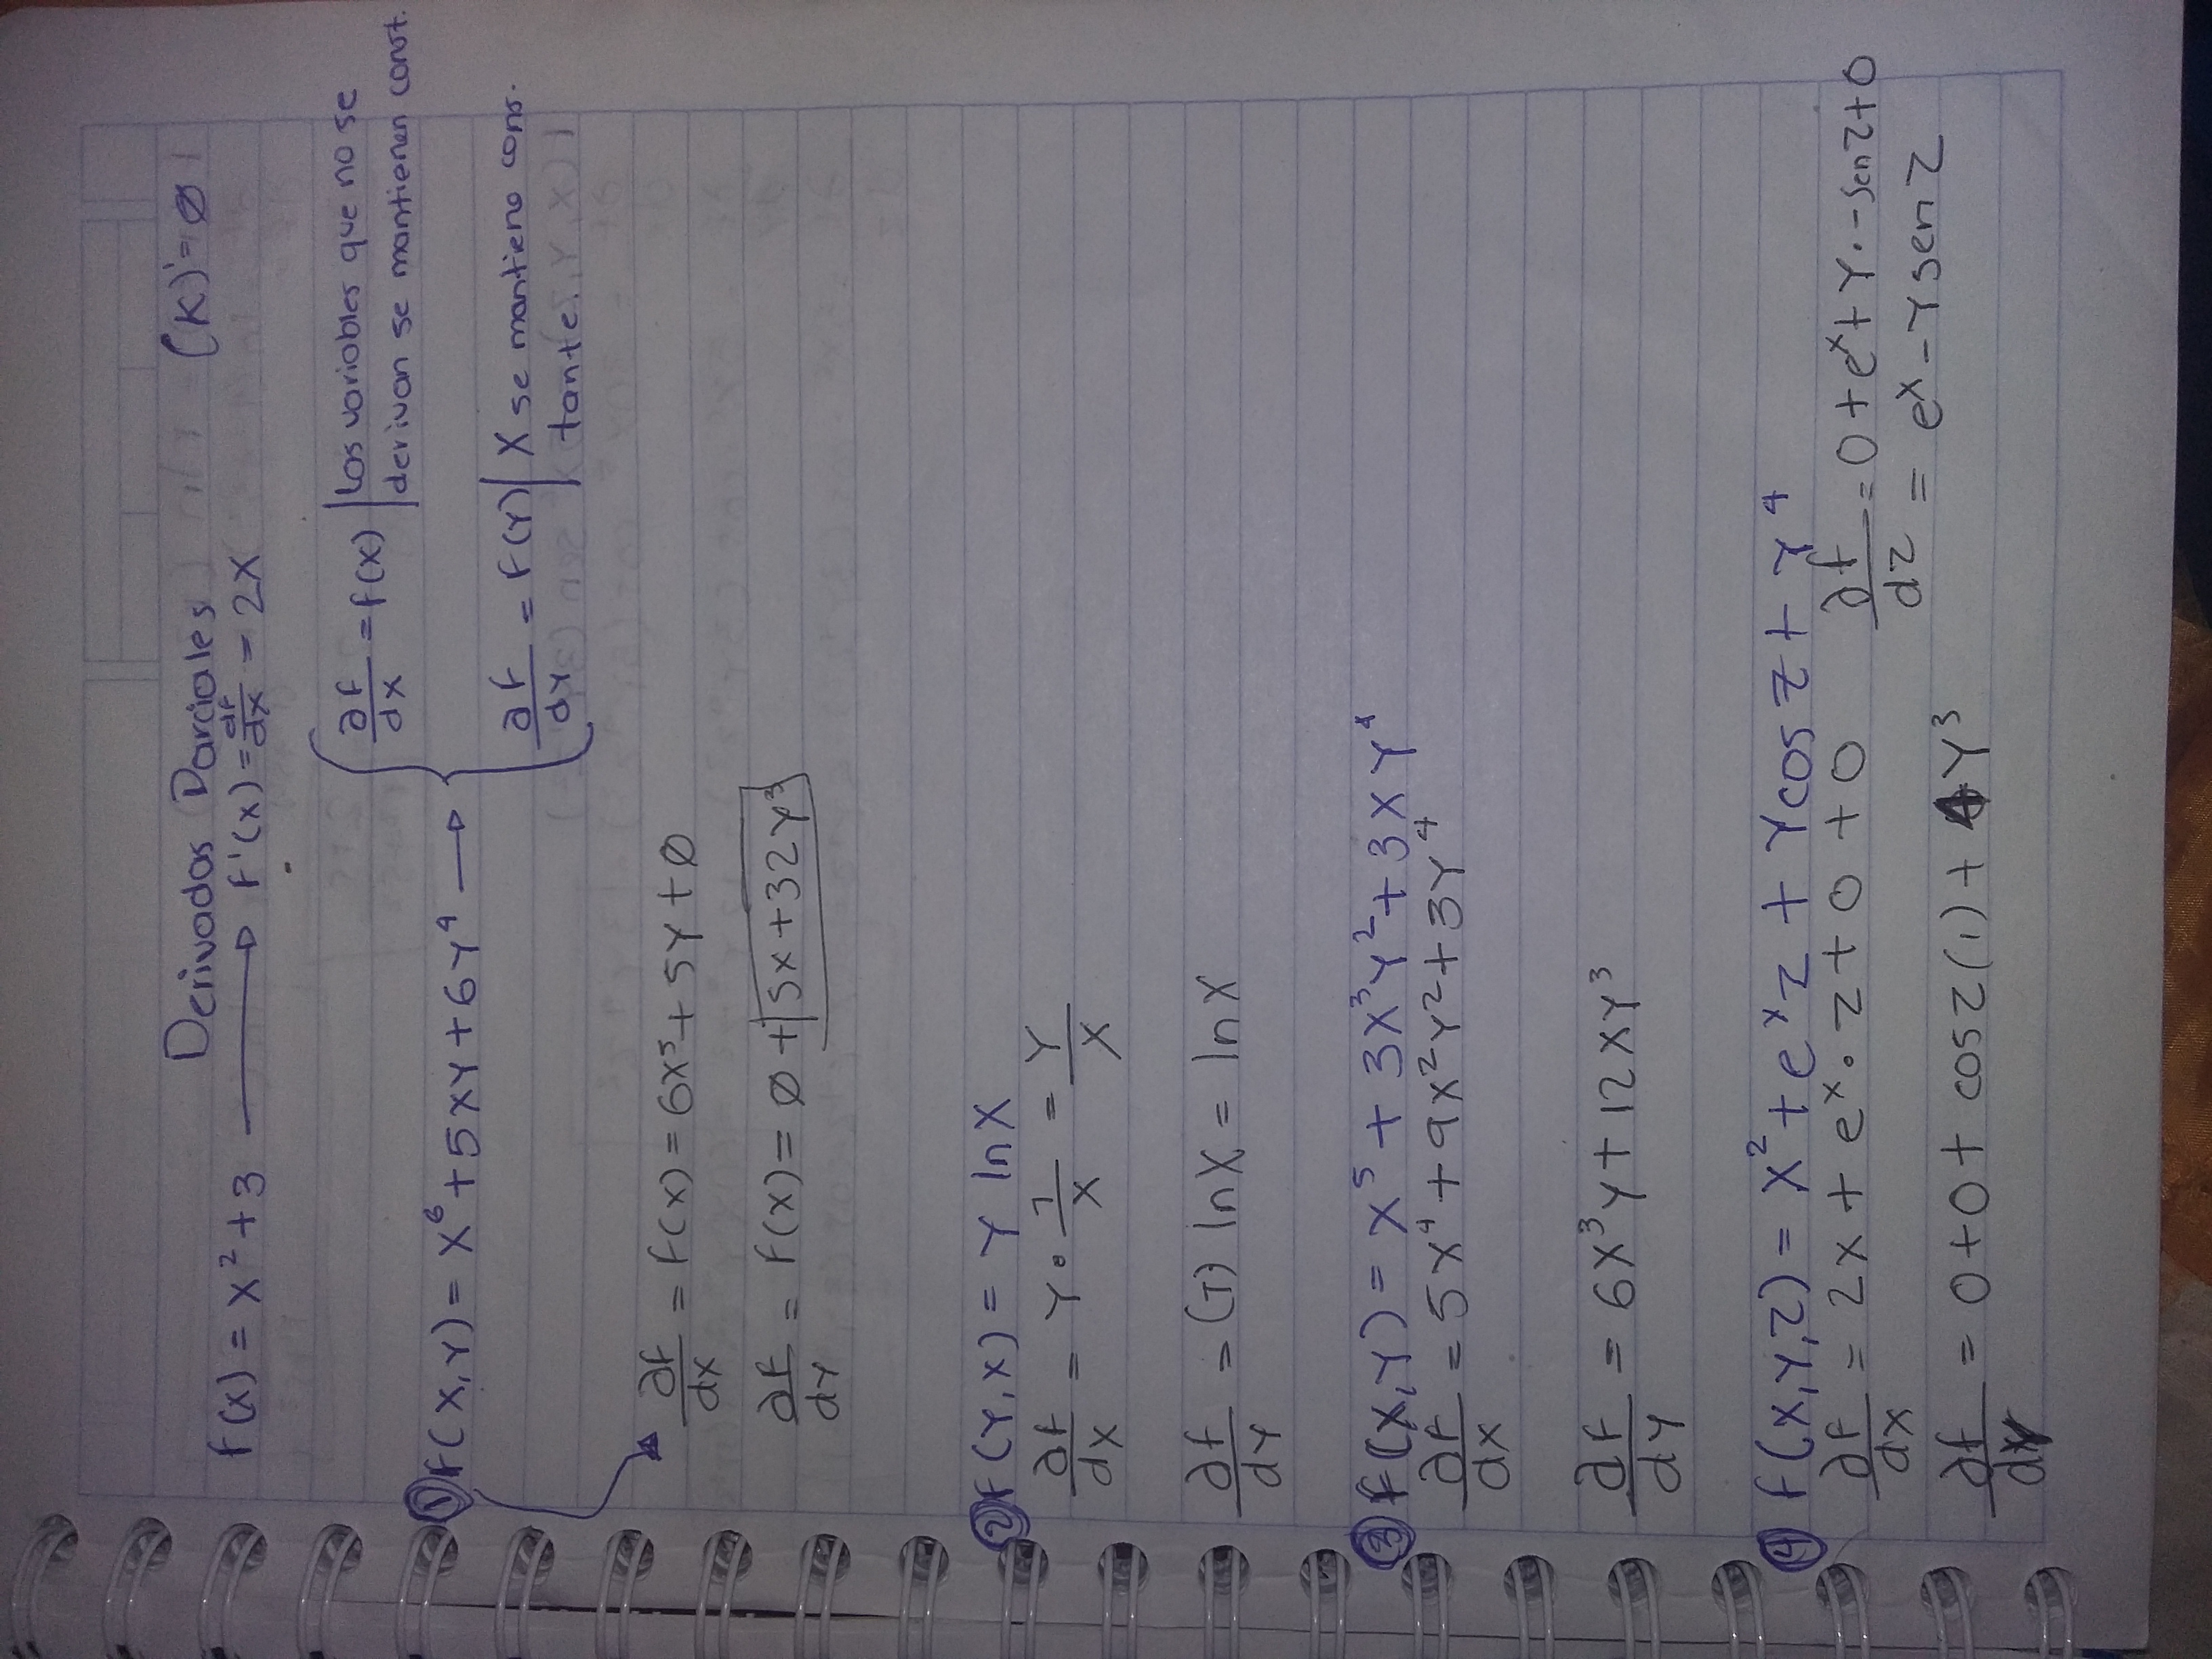 Derivadas Parciales (K)' = Ø
f(x) = x² + 3 ⟶ f'(x) = df/dx = 2x
∂f/dx = f(x) | Las variables que no se
derivan se mantienen const.
① f(x,y) = x⁶ + 5xy + 6y⁴ ⟶
∂f/dy = f(y) | X se mantiene cons.
tante.
∂f/dx = f(x) = 6x⁵ + 5y + Ø
∂f/dy = f(x) = Ø + 5x + 32y³
② f(y,x) = y ln x
∂f/dx = y • 1/x = y/x
∂f/dy = (1) ln x = ln x
③ f(x,y) = x⁵ + 3x³y² + 3xy⁴
∂f/dx = 5x⁴ + 9x²y² + 3y⁴
∂f/dy = 6x³y + 12xy³
④ f(x,y,z) = x² + eˣz + y cos z + y⁴
∂f/dx = 2x + eˣ • z + 0 + 0
∂f/dz = 0 + eˣ + y • -sen z + 0
= eˣ - y sen z
∂f/dy = 0 + 0 + cos z (1) + 4y³